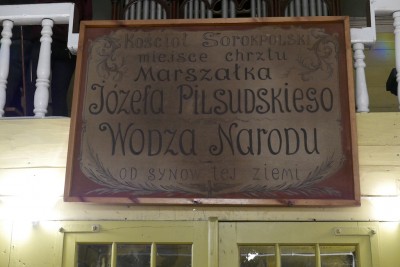 Kościół Sorokpolski
miejsce chrztu
Marszałka
Józefa Piłsudskiego
Wodza Narodu
od synów tej ziemi